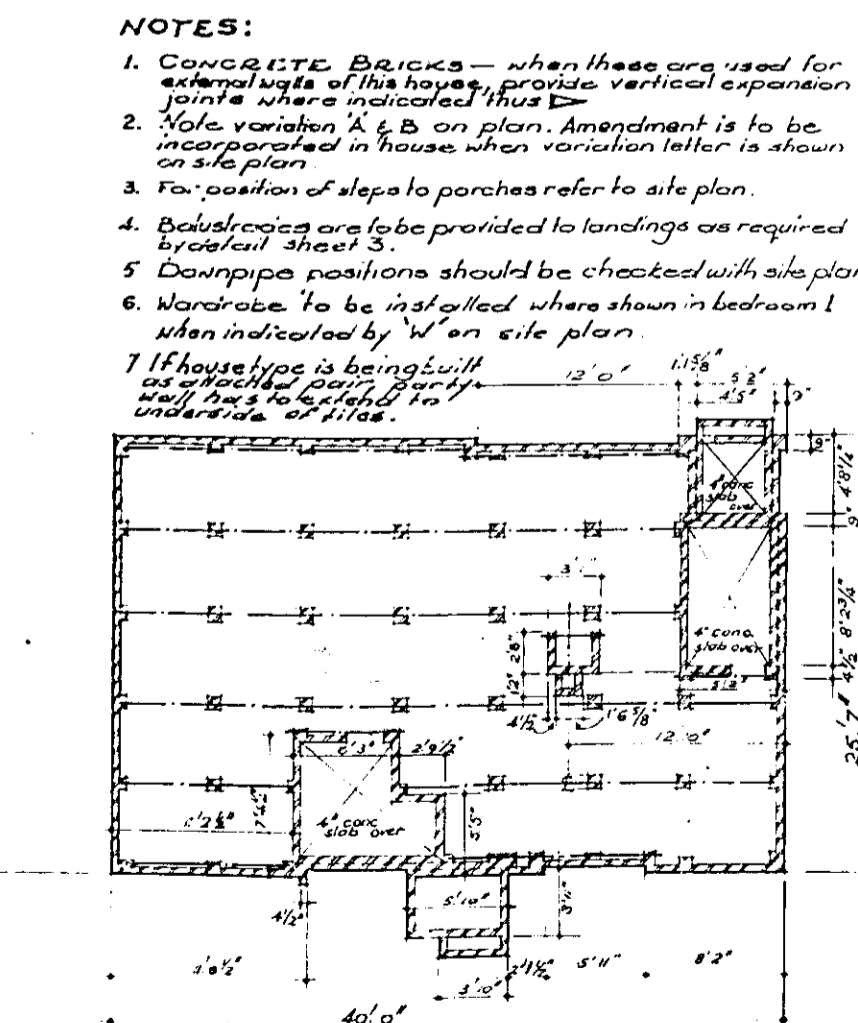 NOTES:
1. CONCRETE BRICKS — when these are used for
external walls of this house, provide vertical expansion
joints where indicated thus
2. Note variation 'A' & 'B' on plan. Amendment is to be
incorporated in house when variation letter is shown
on site plan
3. For position of steps to porches refer to site plan.
4. Balustrades are to be provided to landings as required
by detail sheet 3.
5 Downpipe positions should be checked with site plan
6. Wardrobe to be installed where shown in bedroom 1
when indicated by 'W' on site plan.
7 If house type is being built
as attached pair, party
wall has to extend to
underside of tiles.
12'0" 1'1 5/8" 5'2"
4'5" 9"
9"
4'8 1/4"
4" conc
slab
over
9"
8'2 3/4"
2'8"
4" conc
slab over
4 1/2"
12"
4 1/2" 1'6 5/8"
12'0"
25'7"
2'9 1/2"
4" conc
slab over
5'5"
4 1/2"
5'10"
3'10" 2'1 1/2" 5'11" 8'2"
40'0"